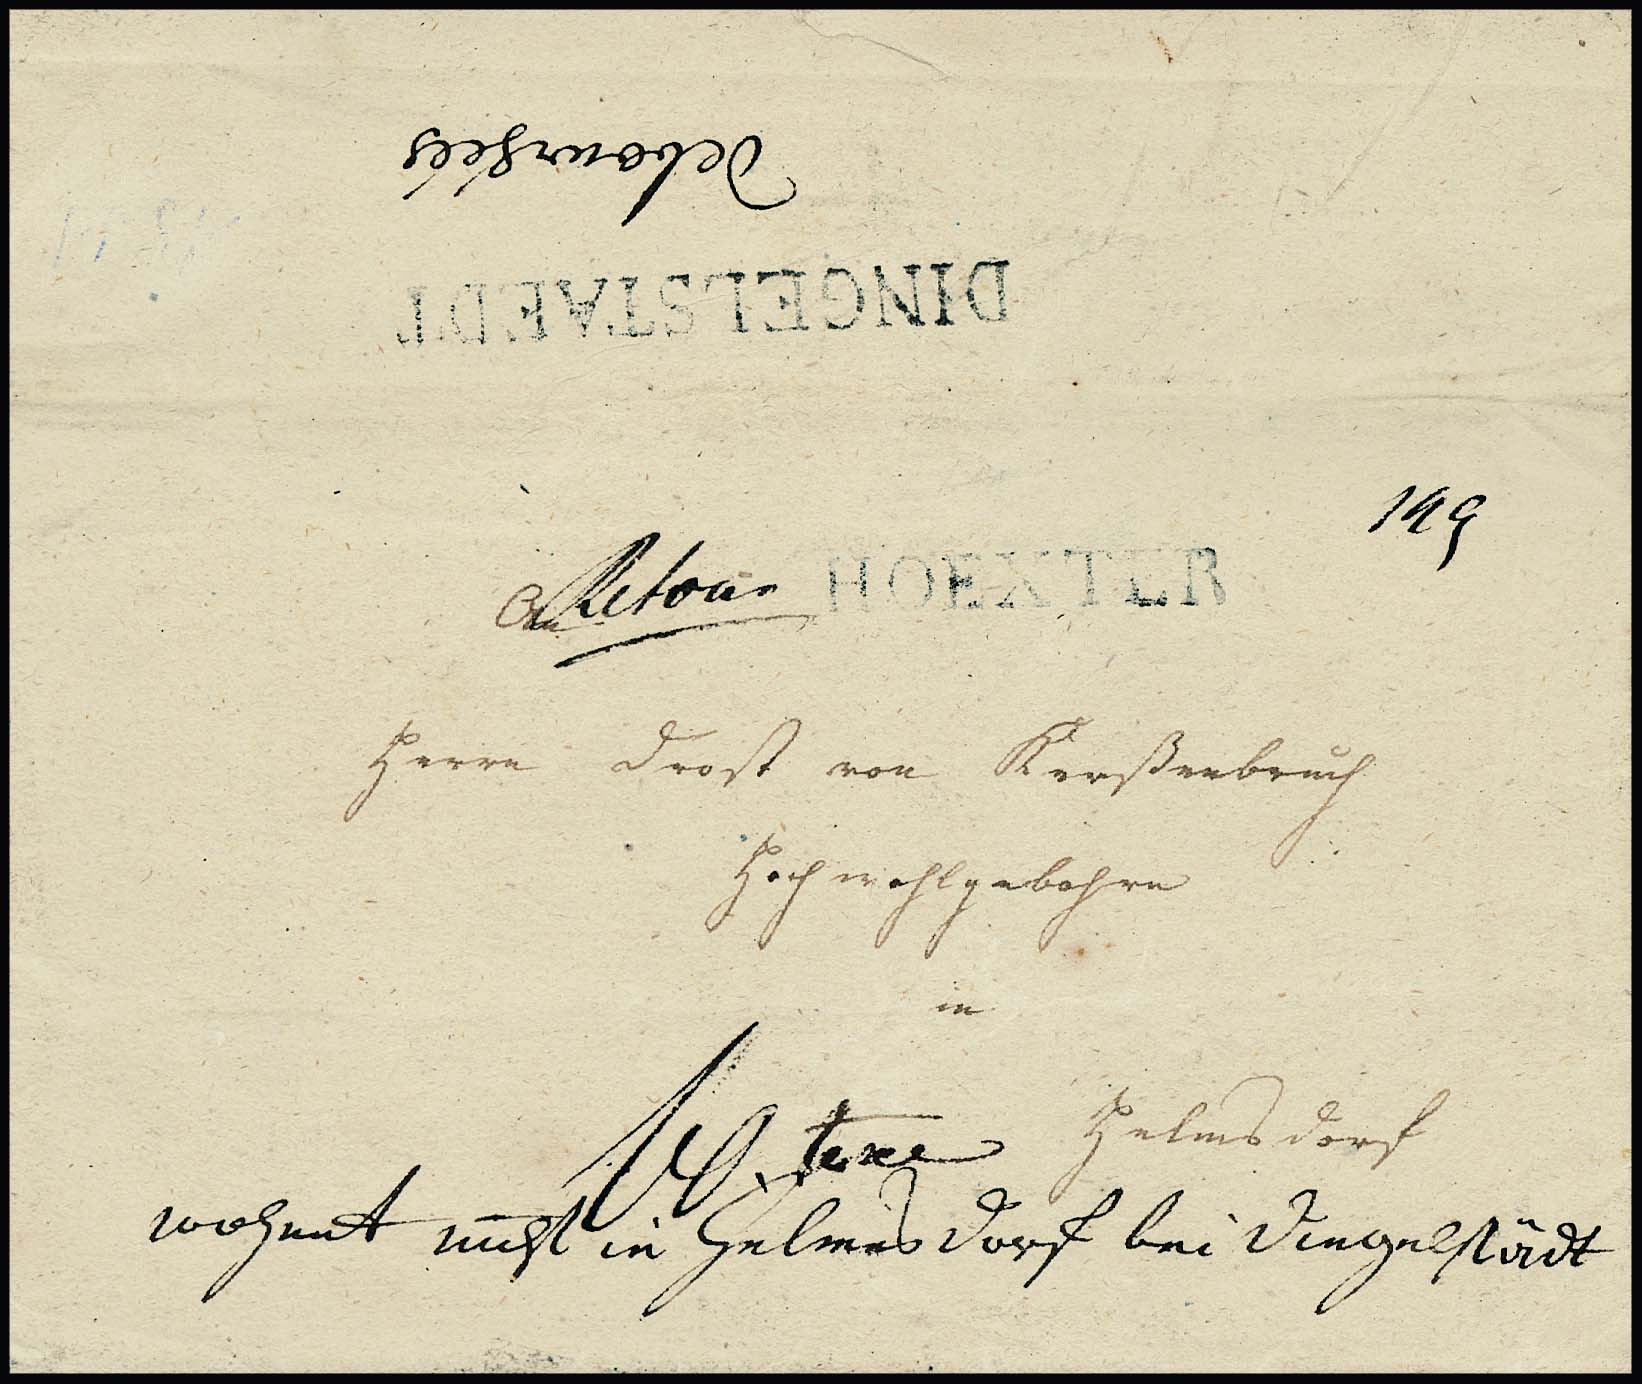 debourseés
DINGELSTAEDT
149
An Retour HOEXTER
Herrn Drost von Kerßenbruch
Hochwohlgebohrn
in
Helmsdorf
wohnt nicht in Helmsdorf bei Dingelstädt